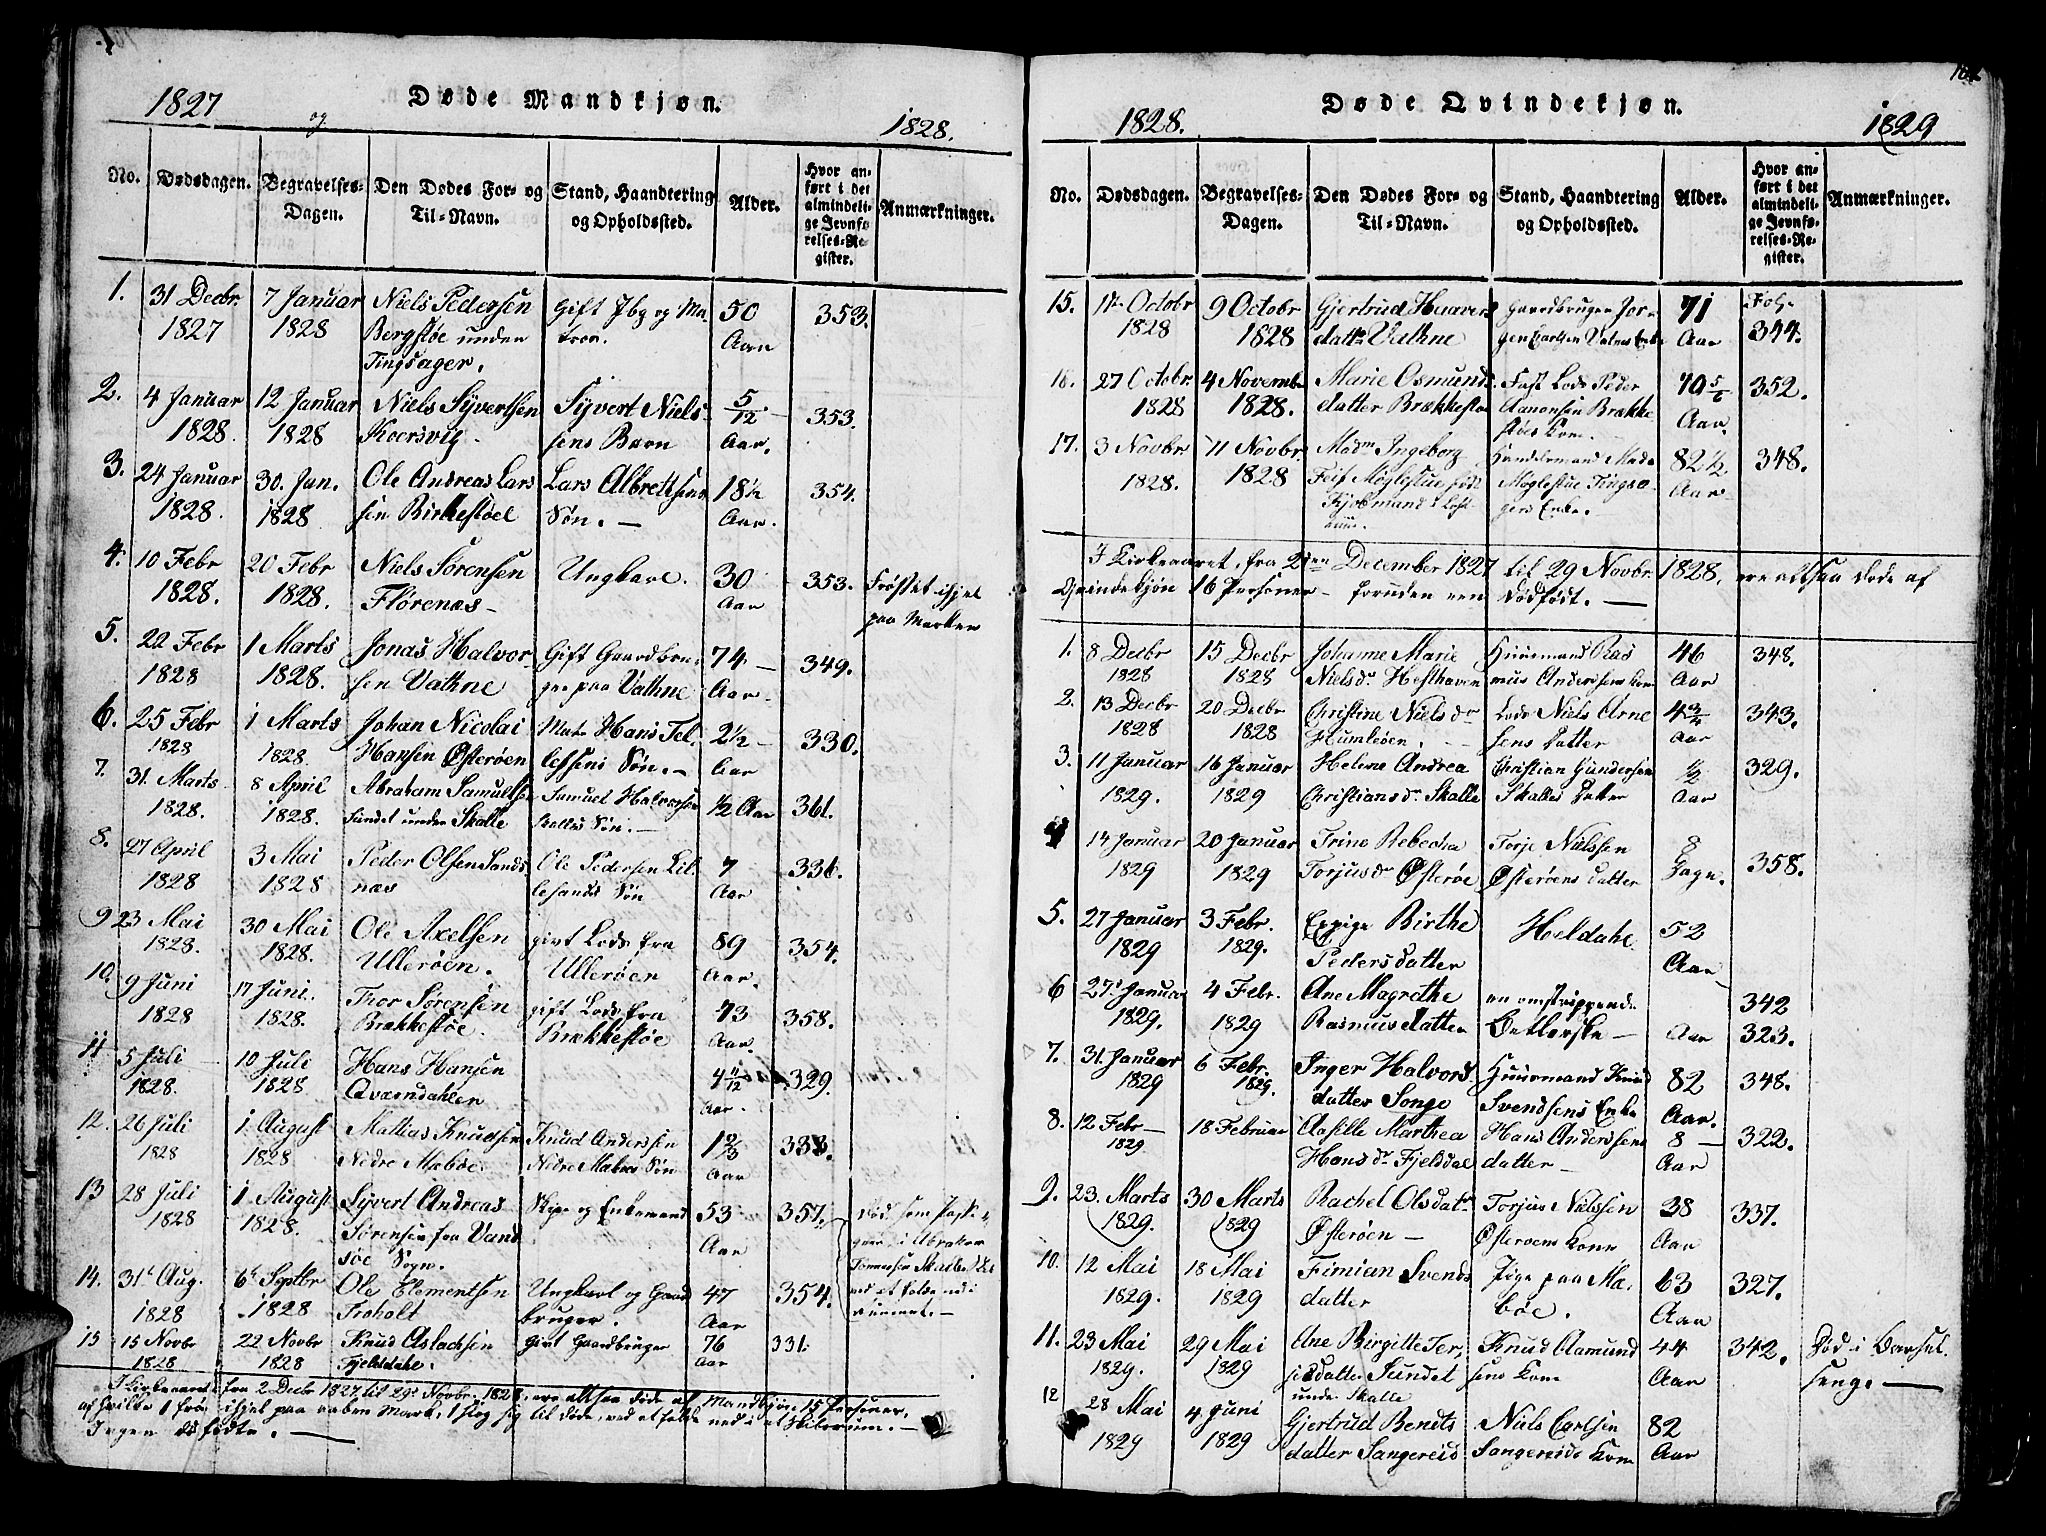 1827 og Døde Mandkjøn. 1828.
No. Dødsdagen. Begravelses-Dagen. Den Dødes For- og Til-Navn. Stand, Haandtering og Opholdssted. Alder. Hvor anført i det almindelige Jevnførelses-Register. Anmærkninger.
1. 31 Decbr. 7 Januar Niels Pedersen Gift Jbg og Ma- 50 353.
1827 1828 Bergstøe under tros. Aar
Tingsager.
2. 4 Januar 12 Januar Niels Syvertsen Syvert Niels- 5/12 353.
1828. 1828 Koersvig sens Barn Aar.
3. 24 Januar 30. Jan. Ole Andreas Lars Lars Albretsens 18½ 354.
1828. 1828 sen Birkestøel Søn. — Aar.
4. 10 Febr 20 Febr Niels Sørensen Ungkarl. 30 353. Frosset ihjel
1828. 1828. Flørenæs Aar paa Marken
5. 22 Febr 1 Marts Jonas Halvor Gift Gaardbru- 74 349.
1828 1828. sen Vathne ger paa Vathne Aar.
6. 25 Febr 1 Marts Johan Nicolai Mat. Hans Tel- 2½ 330.
1828 1828. Hansen Østerøen lefsens Søn. Aar
7. 31. Marts 8 April Abraham Samuelsen Samuel Halvorsen ½ Aar 361.
1828. 1828. Sundet under Skalle Skalles Søn.
8. 27 April 3 Mai Peder Olsen Sands Ole Pedersen Lil- 7 336.
1828 1828 næs lesands Søn Aar
9 23 Mai 30 Mai Ole Axelsen givt Lods fra 89 354.
1828. 1828. Ullerøen. Ullerøen Aar.
10. 9 Juni 17 Juni. Thor Sørensen gift Lods fra 73 358.
1828 1828. Brækkestøe. Brækkestøe Aar.
11 5 Juli 10 Juli Hans Hansen 4 11/12 329.
1828. 1828 Qværndahlen Aar.
12. 26 Juli 1 August Mattias Knudsen Knud Anderssen 1 2/3 338.
1828 1828 Nedre Mæbøe Nedre Mæbøes Søn Aar
13 28 Juli 1 August Syvert Andreas Skips og Enkemand 53 357.
1828 1828. Sørensen fra Vand Aar
søe Sogn.
14. 31t Aug. 6t Septbr Ole Clementsen Ungkarl og Gaard 47 354.
1828 1828 Trøholt bruger. Aar
15 15 Novbr 22 Novbr Knud Aslachsen givt Gaardbruger 76 331.
1828 1828 Fjelddahl. Aar
I Kirkeaaret fra 2 Decbr 1827 til 29t Novbr. 1828, ere altsaa døde af Mandkjøn 15 Personer,
af hvilke 1 frøs ihjel paa aaben Mark, 1 slog sig til døde, ved at falde ned i et Skibsrum. —
Ingen dødfødte. —
1828. Døde Qvindekjøn. 1829
No. Dødsdagen. Begravelses-Dagen. Den Dødes For- og Til-Navn. Stand, Haandtering og Opholdssted. Alder. Hvor anført i det almindelige Jevnførelses-Register. Anmærkninger.
15. 1t Octobr 9 Octobr Gjertrud Haavers Gaardbruger Jør- 71 Fol.
1828 1828 datter Vathne gen Carlsen Vatnes Enke Aar 344.
16. 27 Octobr 4 Novembr Marie Osmunds Fast Lods Peder 70 5/6 352.
1828 1828. datter Brækkestøe Aanonsen Brække Aar.
støes Kone.
17. 3 Novbr 11 Novbr. Madm Ingeborg Handelsmand Mads 82½ 348.
1828. 1828 Feif Møglestue født Møglestue Tingsa- Aar
gers Enke.
I Kirkeaaret, fra 2den December 1827 til 29 Novbr. 1828, ere altsaa døde af
Qvindekjøn 16 Personer — foruden een Dødfødt. —
1. 8 Decbr 15 Decbr Johanne Marie Huusmand Ras 46 348.
1828 1828 Nielsdr Hesthaven mus Anderssens Kone Aar
2. 13 Decbr 20 Decbr Christine Nielsdr Lods Niels Arne 4 3/4 343.
1828 1828 Humleøen. sens Datter Aar
3. 11 Januar 16 Januar Helene Andrea Christian Gundersen ½ 329.
1829. 1829 Christiansdr Skalle Skalles Datter Aar
4 14 Januar 20 Januar Trine Rebecka Torje Nielssen 8 358.
1829 1829 Torjusdr Østerøe Østerøens datter Dage.
5. 27 Januar 3 Febr. Eppige Birthe Heldahl 52
1829 1829. Pedersdatter Aar
6 27t Januar 4 Febr. Ane Magrethe en omstrippende 342
1829. 1829 Rasmusdatter Betlerske — Aar 323.
7. 31. Januar 6 Febr. Inger Halvors Huusmand Knud 82 348.
1829 1829. datter Songe Svendsens Enke Aar.
8. 12 Febr 18 Februar Aaselle Marthea Hans Anderssens 8 322.
1829 Hansdr Fjelddal datter Aar
9. 23. Marts 30 Marts Rachel Olsdatr Torjus Nielssen 38 337.
1829. 1829 Østerøen — Østerøens Kone Aar
10. 12 Mai 18 Mai Fimian Svends Pige paa Mæ- 63 327.
1829. 1829 datter bøe. Aar
11. 23 Mai 29 Mai Ane Birgitte Ter- Knud Aamund 44 342. Død i Barsel
1829. 1829 jesdatter Sundet sens Kone Aar senge
under Skalle
12 28 Mai 4 Juni Gjertrud Bendts Niels Carlsen 82
1829 1829 datter Sangereid Sangereids Kone Aar